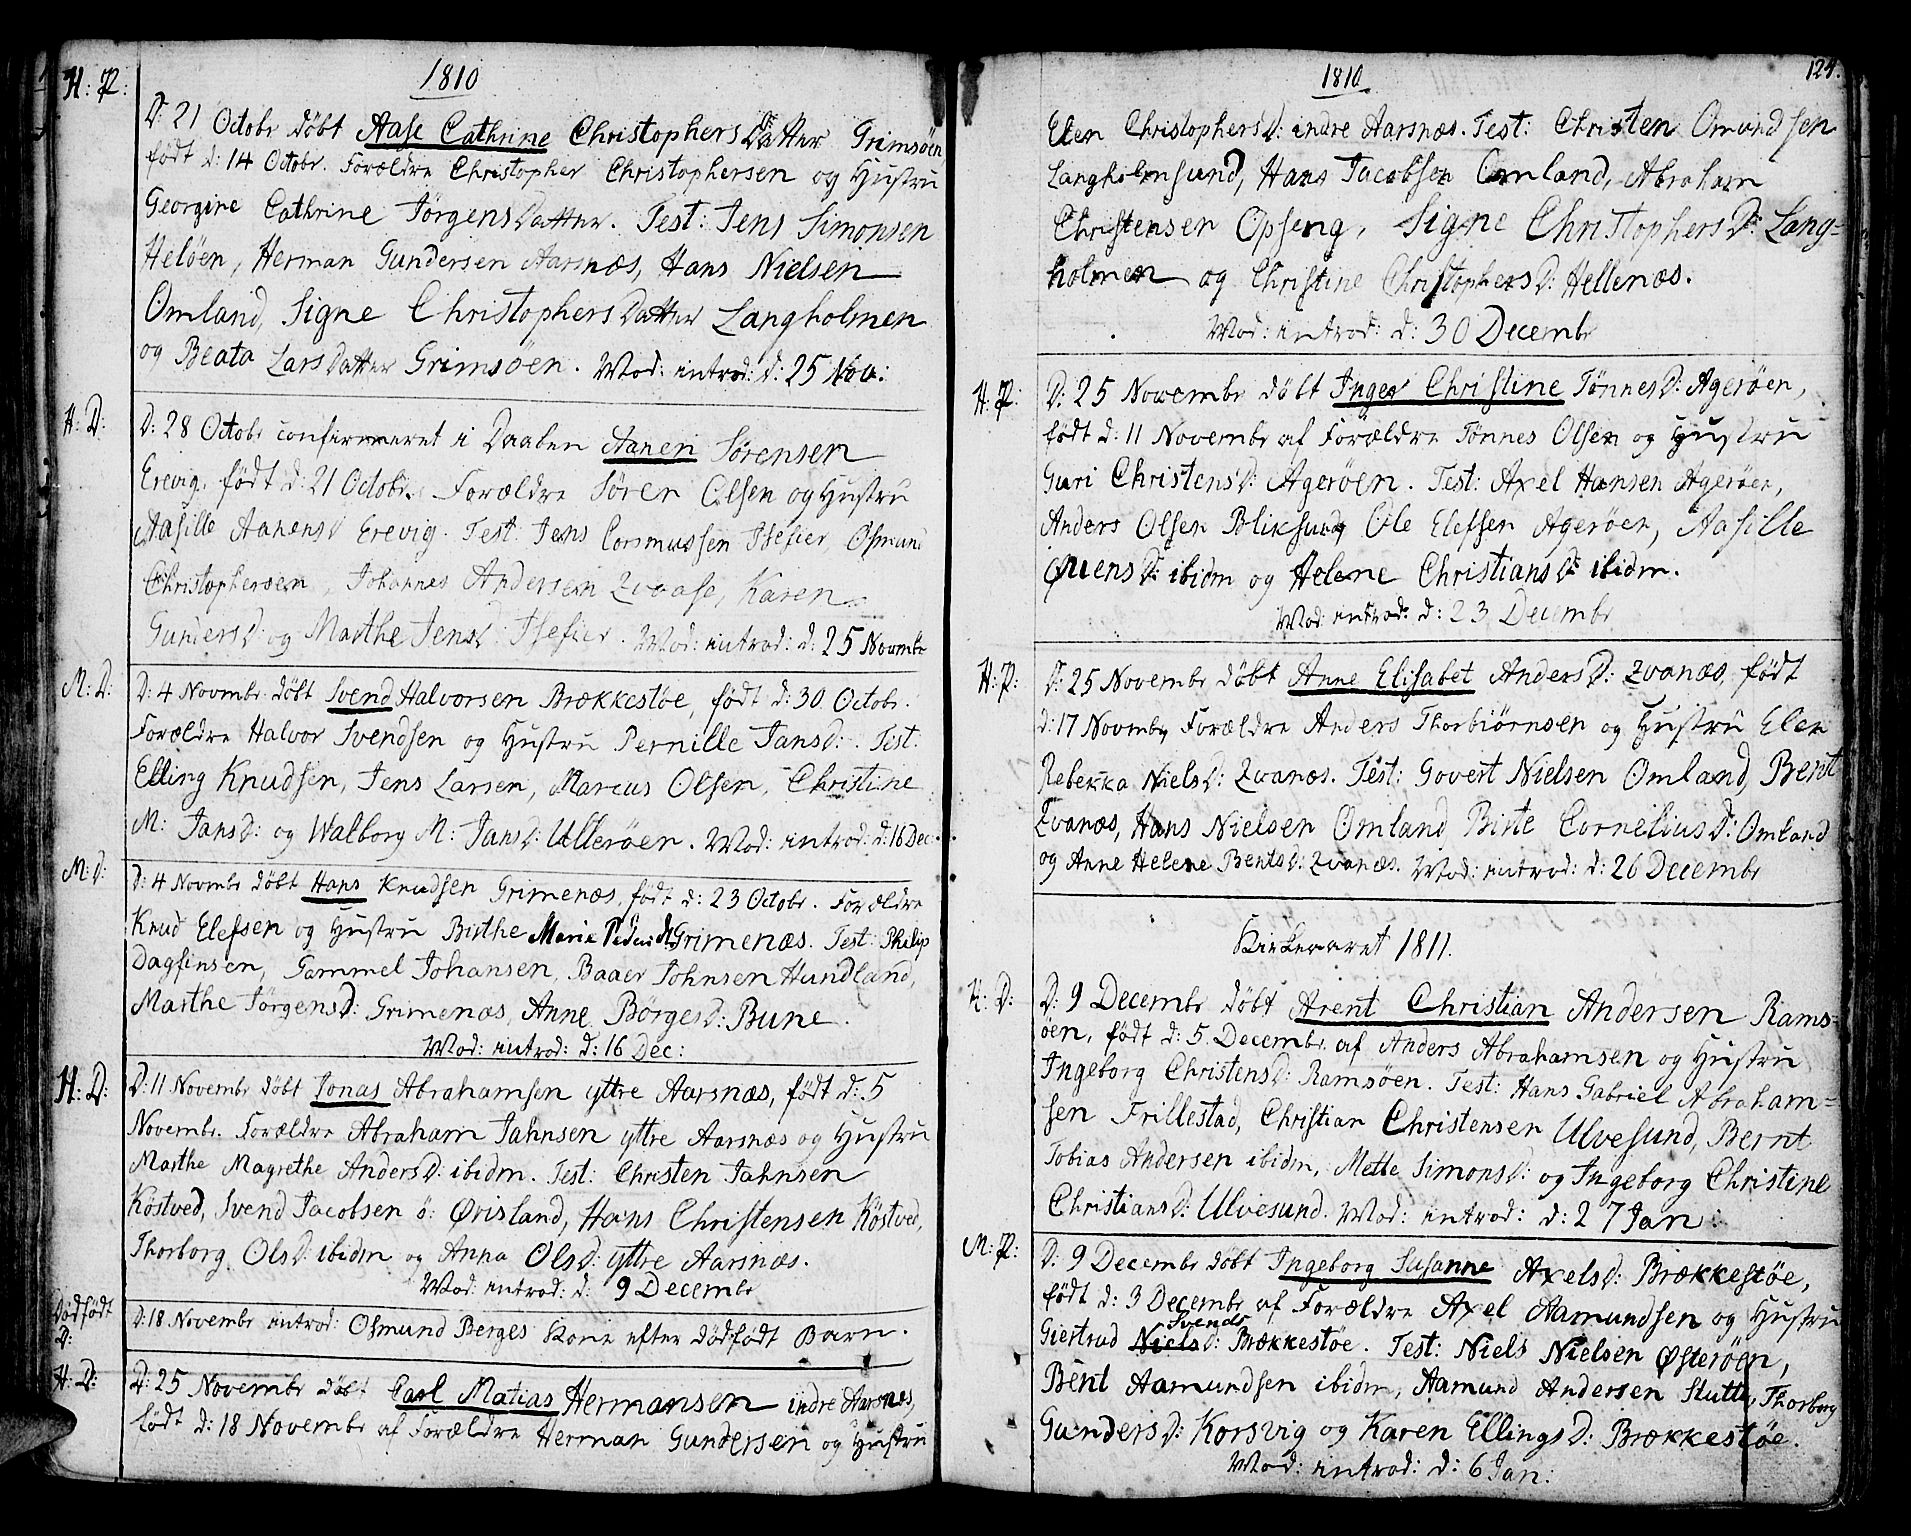 1810
H: P:
D: 21 Octobr døbt Aase Cathrine ChristophersDatter Grimsöen,
født d: 14 Octobr. Forældre Christopher Christophersen og Hustru
Georgine Cathrine JörgensDatter. Test: Jens Simonsen
Helöen, Herman Gundersen Aarsnæs, Hans Nielsen
Omland, Signe ChristophersDatter Langholmen
og Beata LarsDatter Grimsöen. Mod: introd: d: 25 Nov:
H: D:
D: 28 Octobr confirmeret i Daaben Aanen Sørensen
Erevig, født d: 21 Octobr. Forældre Sören Olsen og Hustru
Aasille Aanensd Erevig. Test: Jens Corsmussen Isefier, Osmund
Christophersen, Johannes Andersen Qvaase, Karen
GundersD: og Marthe JensD: Isefier. Mod: introd: d: 25 Novembr
M: D:
D: 4 Novmbr: døbt Svend Halvorsen Brækkestøe, født d: 30 Octobr.
Forældre Halvor Svendsen og Hustru Pernille Jansd:. Test:
Elling Knudsen, Jens Larsen, Marcus Olsen, Christine
M: Jansd: og Walborg M: Jansd: Ulleröen. Mod: introd: d: 16 Dec:
M: D:
D: 4 Novmbr døbt Hans Knudsen Grimenæs, født d: 23 Octobr. Forældre
Knud Elefsen og Hustru Birthe Marie Grimenæs. Test: Philip
Dagfinsen, Gammel Johansen, Baaer Johnsen Hundland,
Marthe Jörgensd: Grimenæs, Anne Börgesd: Bune.
Mod: introd: d: 16 Dec:
H: D:
D: 11 Novembr døbt Jonas Abrahamsen yttre Aarsnæs, født d: 5
Novembr. Forældre Abraham Jahnsen yttre Aarsnæs og Hustru
Marthe Magrethe AndersD: ibidm. Test: Christen Jahnsen
Köstved, Svend Jacobsen ö: Ørisland, Hans Christensen Köstved,
Thorborg OlsD: ibidm og Anna OlsD: yttre Aarsnæs.
Mod: introd: d: 9 Decembr
Dödfödt
D:
D: 18 Novembr introd: Osmund Berges Kone efter dödfødt Barn.
H: D:
D: 25 Novembr døbt Carl Matias Hermansen indre Aarsnes,
født d: 18 Novembr af Forældre Herman Gundersen og Hustru
1810
124.
Elen ChristophersD: indre Aarsnæs. Test: Christen Omundsen
Langholmsund, Hans Jacobsen Omland, Abraham
Christensen Opseng, Signe ChristophersD: Lang=
holmen og Christine ChristophersD: Hellenæs.
Mod: introd: d: 30 Decembr
H: P:
D: 25 Novembr døbt Inger Christine TönnesD: Ageröen,
født d: 11 Novembr af Forældre Tönnes Olsen og Hustru
Guri Christensd: Ageröen. Test: Axel Hansen Ageröen,
Anders Olsen Blixsund Ole Elefsen Ageröen, Aasille
ØuensD: ibidm og Helene ChristiansD: ibidm.
Mod: introd: d: 23 Decembr
H: P:
D: 25 Novembr døbt Anne Elisabet AndersD: Qvanæs, født
d: 17 Novembr, Forældre Anders Thorbiörnsen og Hustru Elen
Rebekka NielsD: Qvanæs. Test: Govert Nielsen Omland, Bent
Qvanæs, Hans Nielsen Omland Birte CorneliusD: Omland
og Anne Helene BentsD: Qvanæs. Mod: introd: d: 26 Decembr
Kirkeaaret 1811.
H: D:
D: 9 Decembr døbt Arent Christian Andersen Rams=
öen, født d: 5 Decembr af Anders Abrahamsen og Hustru
Ingeborg ChristensD: Ramsöen. Test: Hans Gabriel Abraham=
sen Frillestad, Christian Christensen Ulvesund, Bernt
Tobias Andersen ibidm, Mette SimonsD: og Ingeborg Christine
ChristiansD: Ulvesund. Mod: introd: d: 27 Jan:
M: P:
D: 9 Decembr døbt Ingeborg Susanne AxelsD: Brækkestöe,
født d: 3 Decembr af Forældre Axel Aamundsen og Hustru
Svends
Giertrud NielsD: Brækkestöe. Test: Niels Nielsen Österöen,
Bent Aamundsen ibidm, Aamund Andersen Slutte, Thorborg
GundersD: Korsvig og Karen EllingsD: Brækkestöe.
Mod: introd: d: 6 Jan: